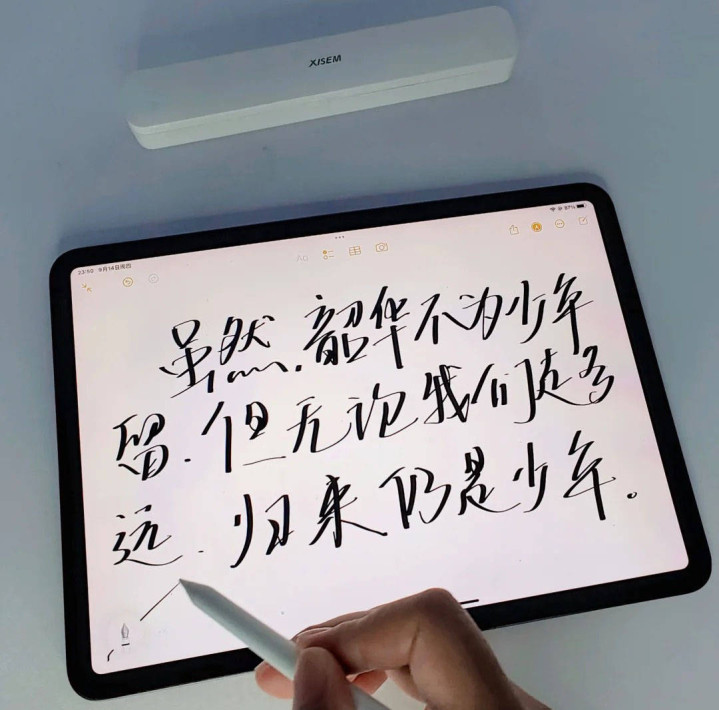 XISEM
23:50 9月14日周四
97%
虽然,韶华不为少年
留.但无论我们走多
远.归来仍是少年。